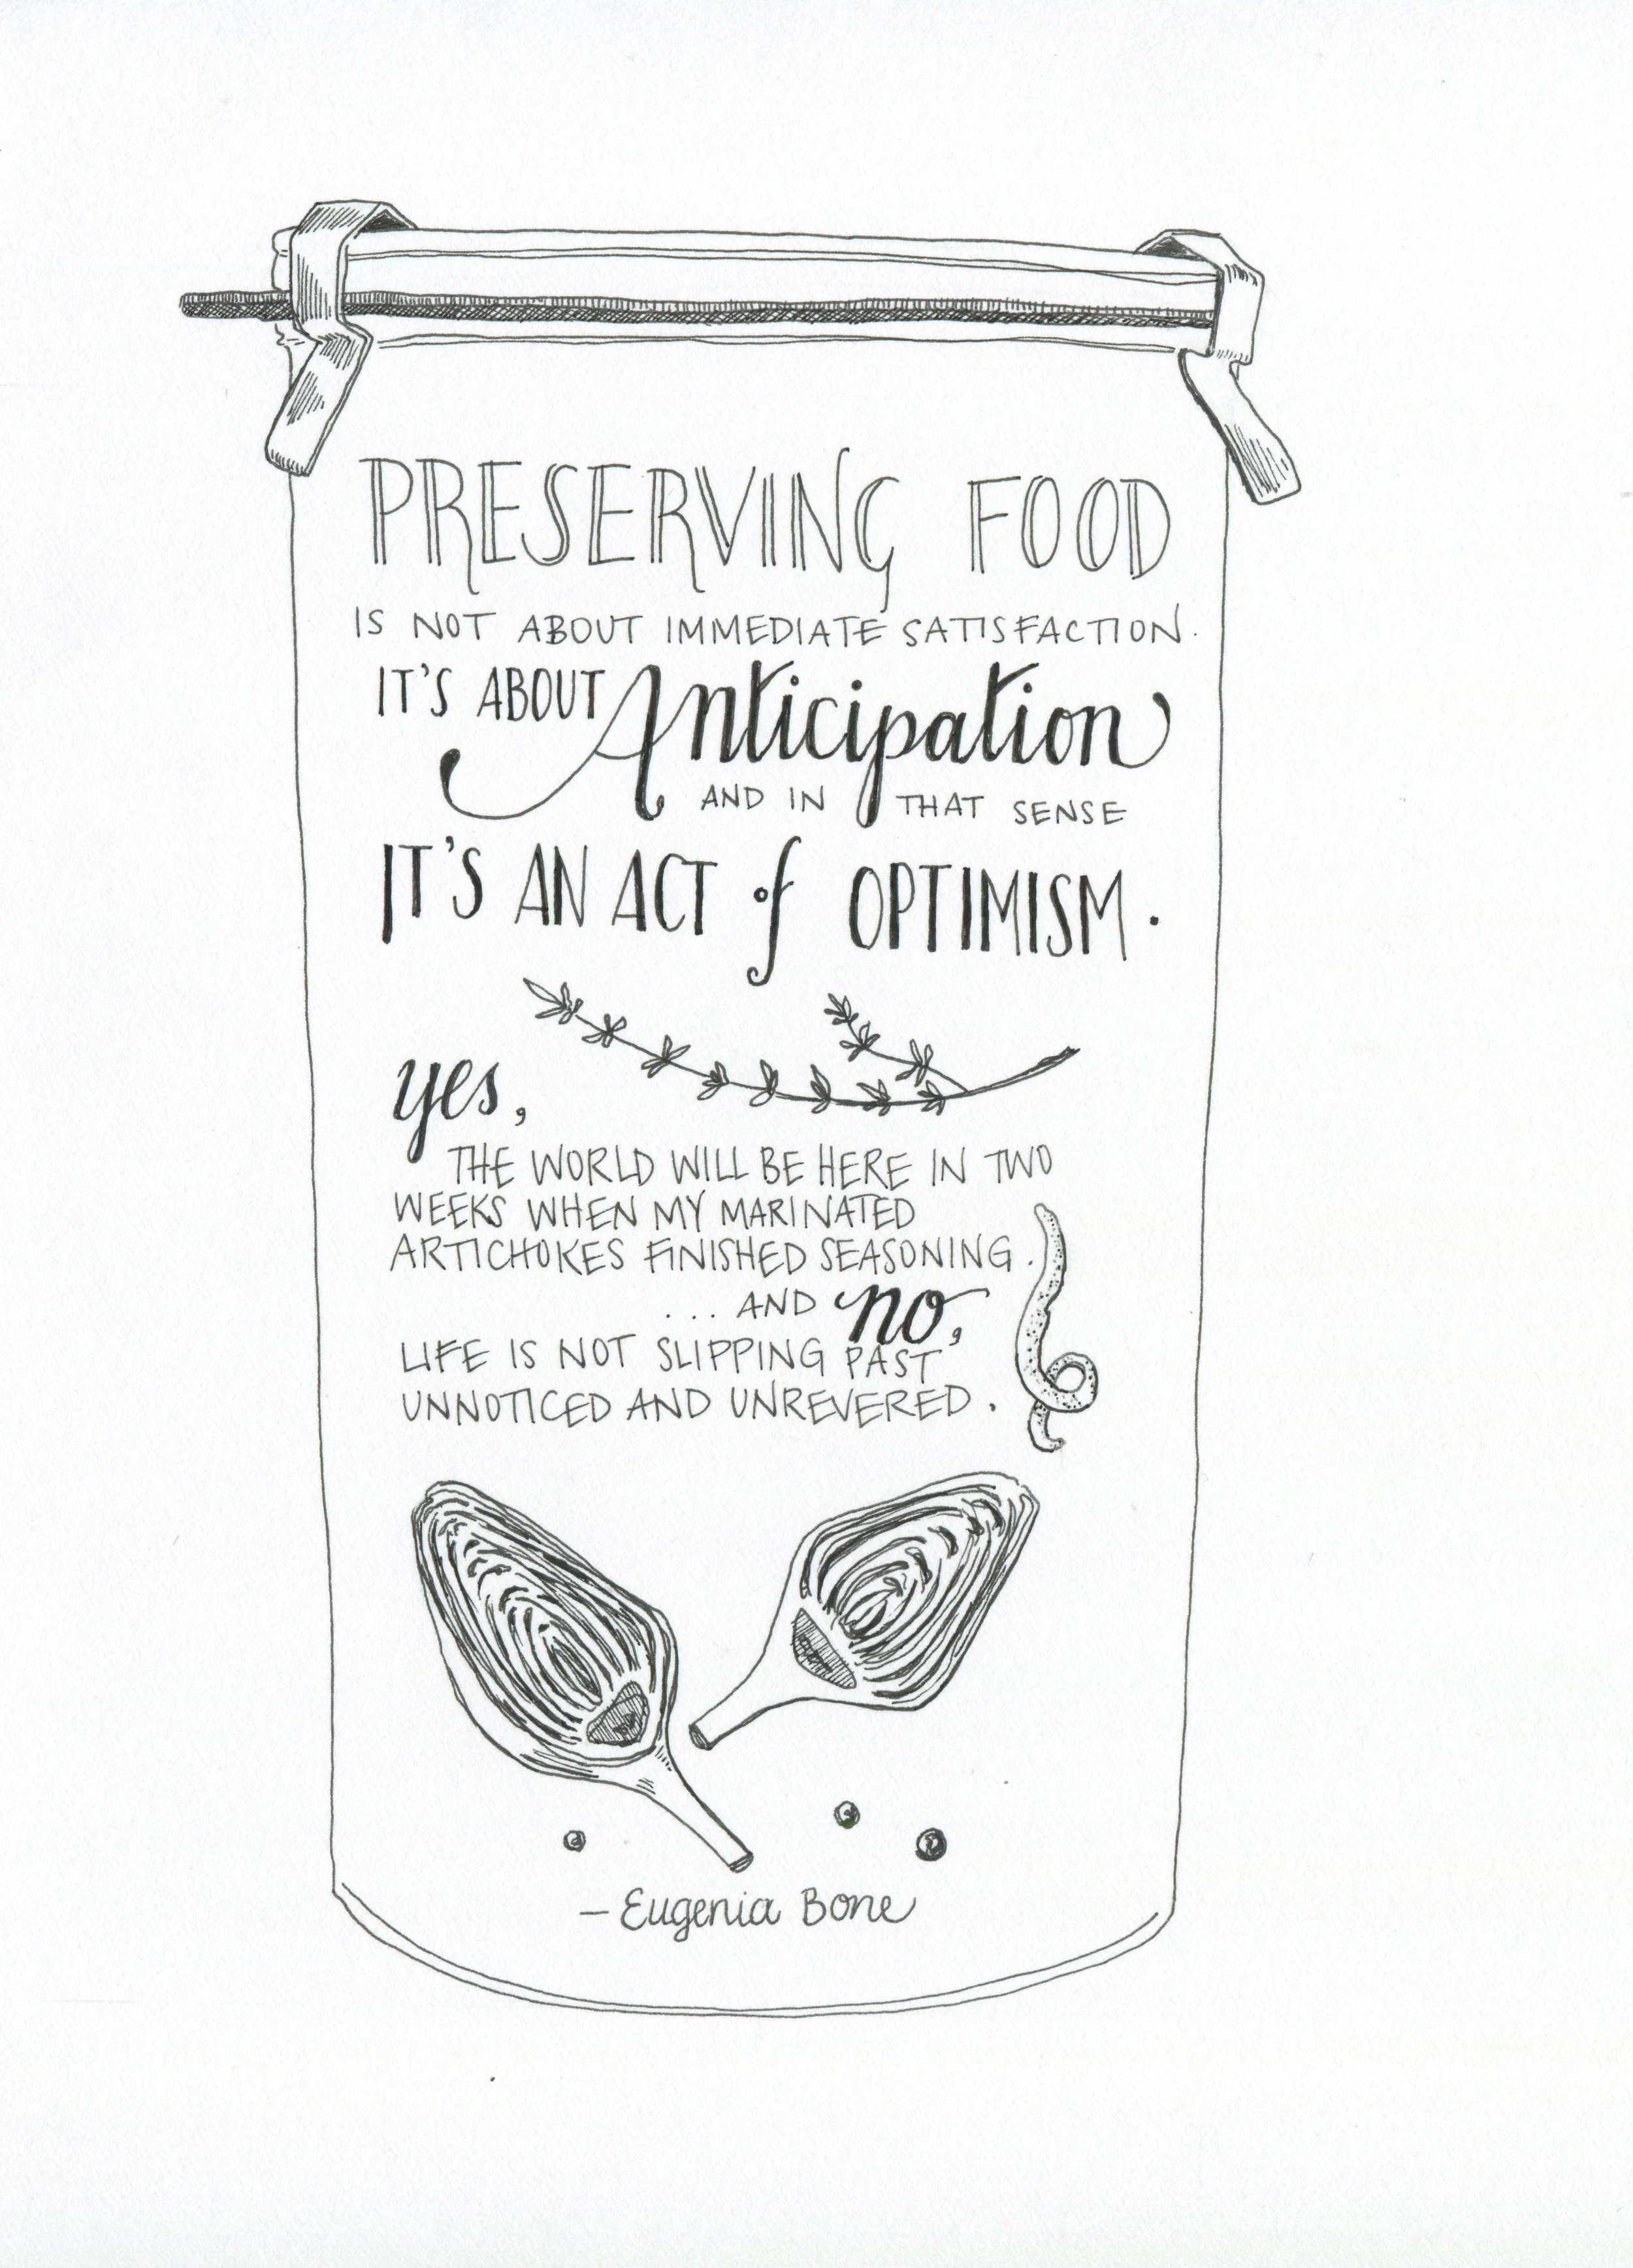 PRESERVING FOOD
IS NOT ABOUT IMMEDIATE SATISFACTION.
IT'S ABOUT Anticipation
AND IN THAT SENSE
IT'S AN ACT of OPTIMISM.
yes,
THE WORLD WILL BE HERE IN TWO
WEEKS WHEN MY MARINATED
ARTICHOKES FINISHED SEASONING.
... AND no,
LIFE IS NOT SLIPPING PAST
UNNOTICED AND UNREVERED.
— Eugenia Bone